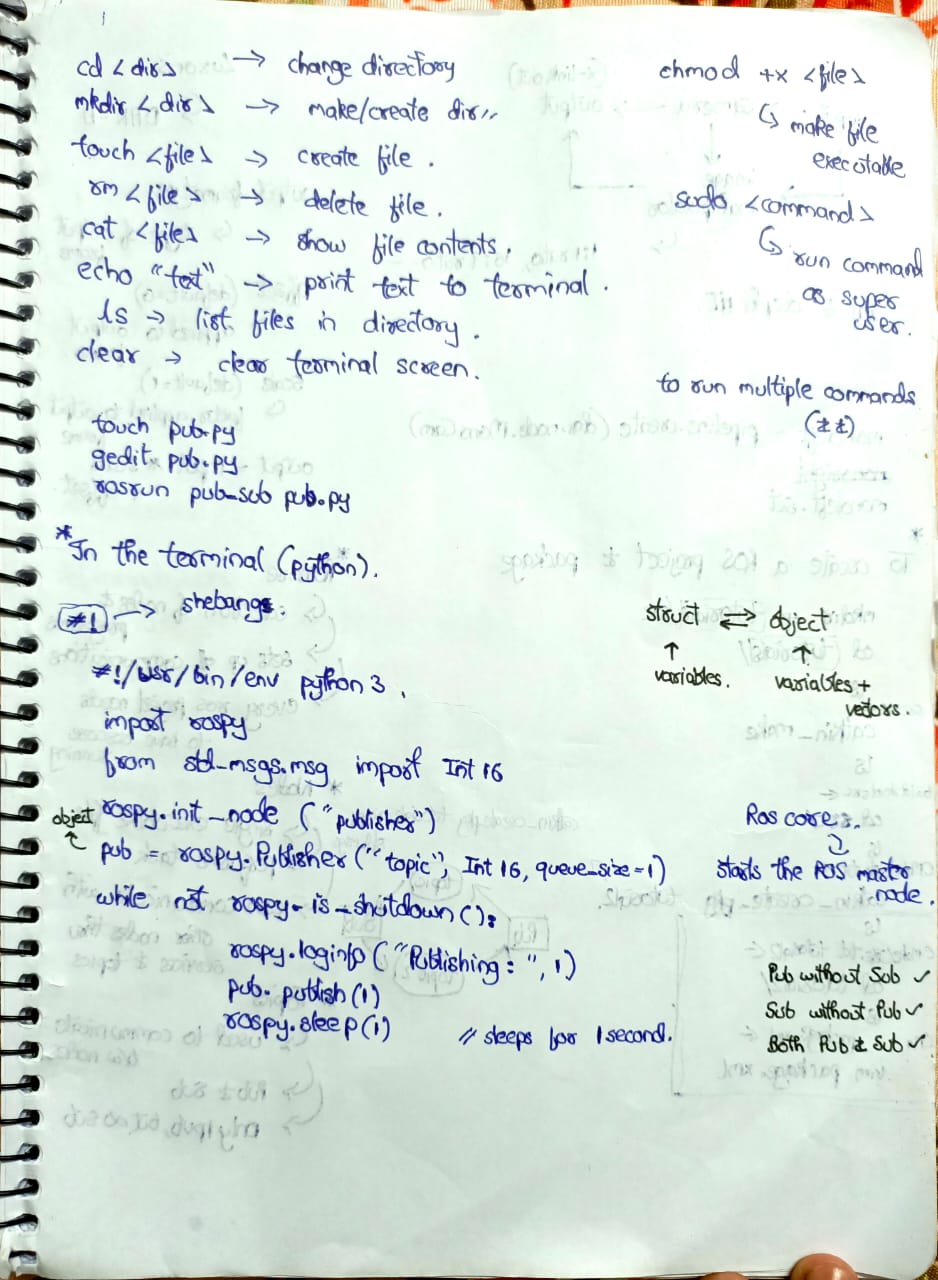 cd <dir> → change directory
mkdir <dir> → make/create dir''
touch <file> → create file.
rm <file> → delete file.
cat <file> → show file contents.
echo "text" → print text to terminal.
ls → list files in directory.
clear → clear terminal screen.
chmod +x <file>
↳ make file
executable
sudo <command>
↳ run command
as super
user.
to run multiple commands
(&&)
touch pub.py
gedit pub.py
rosrun pub_sub pub.py
*In the terminal (python).
#! → shebang:
struct ⇄ object
↑ ↑
variables. variables +
vectors.
#!/usr/bin/env python3.
import rospy
from std_msgs.msg import Int16
rospy.init_node ("publisher")
object
pub = rospy.Publisher ("topic", Int16, queue_size=1)
while not rospy-is-shutdown():
rospy.loginfo ("Publishing:", 1)
pub.publish(1)
rospy.sleep(1) // sleeps for 1 second.
Ros core
starts the ROS master
node.
Pub without Sub ✓
Sub without Pub ✓
Both Pub & Sub ✓